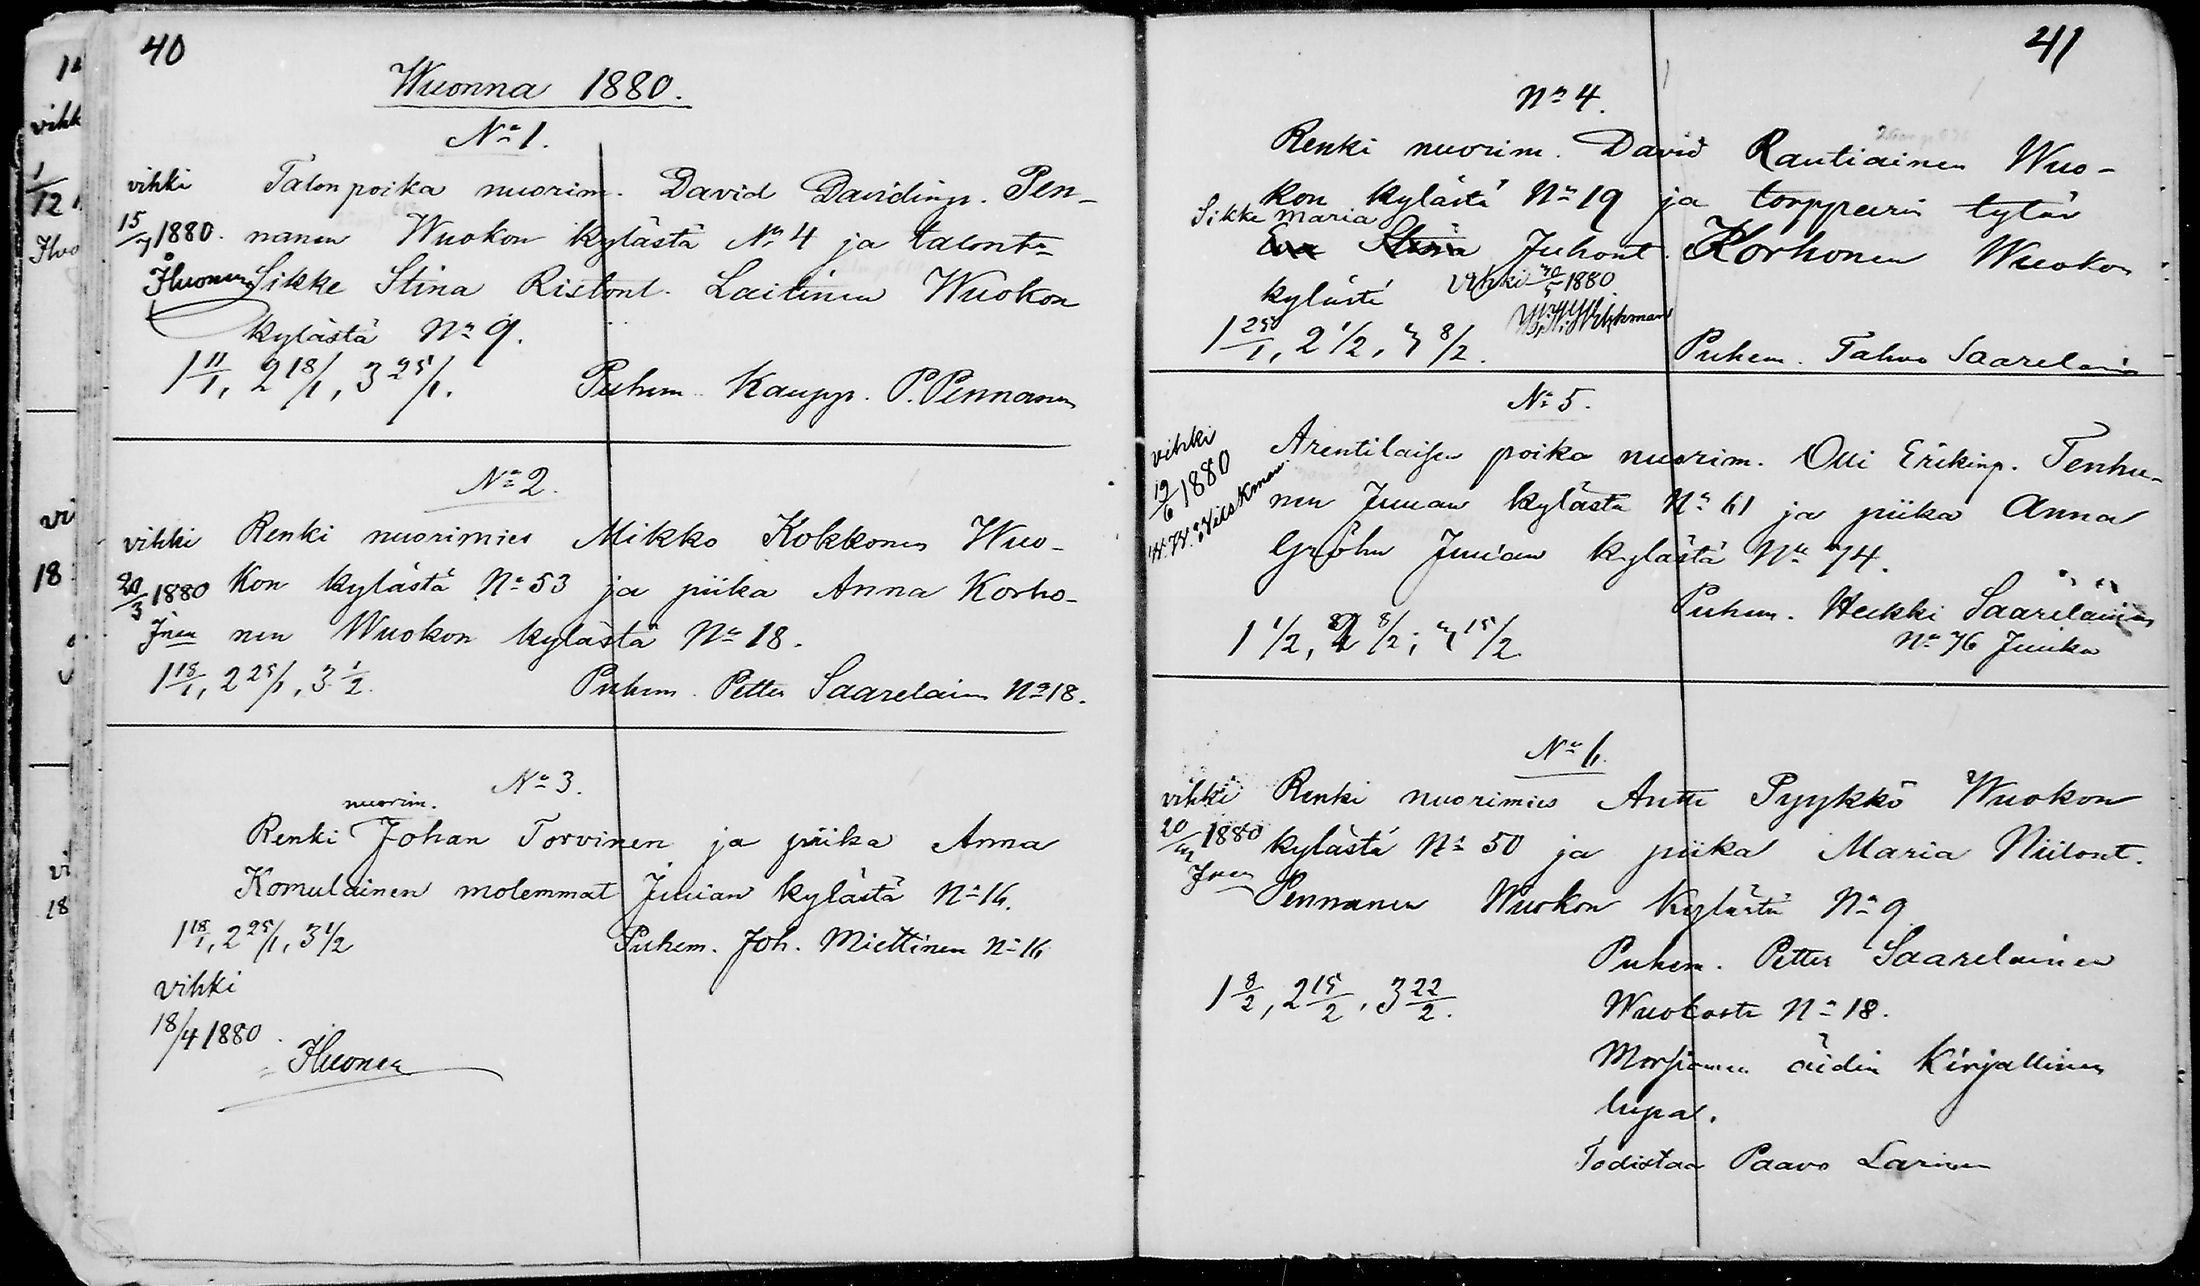 40
Wuonna 1880.
No 1.
vihki Talonpoika nuorim. David Davidinp. Pen-
15/7 1880. nanen Wuokon kylästä No 4 ja talont:
Ihuonen Sikke Stina Ristont. Laitinen Wuokon
kylästä No 9.
1 11/1, 2 18/1, 3 25/1. Puhem. Kaupp. P. Pennanen
No 2.
vihki Renki nuorimies Mikko Kokkonen Wuo-
20/3 1880 kon kylästä No 53 ja piika Anna Korho-
Inen nen Wuokon kylästä No 18.
1 18/1, 2 25/1, 3 1/2. Puhem. Petter Saarelainen No 18.
No 3.
nuorim.
Renki Johan Torvinen ja piika Anna
Komulainen molemmat Juuan kylästä No 16.
1 18/1, 2 25/1, 3 1/2 Puhem. Joh. Miettinen No 16
vihki
18/4 1880.
Ihuonen
41
No 4.
Renki nuorim. David Rautiainen Wuo-
kon kylästä No 19 ja torpparin tytär
Sikke Maria
Eva Stina Juhont. Korhonen Wuokon
kylästä vihki 30/5 1880
1 25/1, 2 1/2, 3 8/2. Puhem. Tahvo Saarelainen
No 5.
vihki Arentilaisen poika nuorim. Olli Erikinp. Tenhu-
19/6 1880 nen Juuan kylästä No 61 ja piika Anna
Gröhn Juuan kylästä No 74.
Puhem. Heikki Saarelainen
1 1/2, 2 8/2, 3 15/2 No 76 Juuka
No 6.
vihki Renki nuorimies Antti Pyykkö Wuokon
20/3 1880 kylästä No 50 ja piika Maria Niilont.
Inen Pennanen Wuokon kylästä No 9
Puhem. Petter Saarelainen
1 8/2, 2 15/2, 3 22/2. Wuokosta No 18.
Morsiamen äidin kirjallinen
lupa.
Todistaa Paavo Larinen